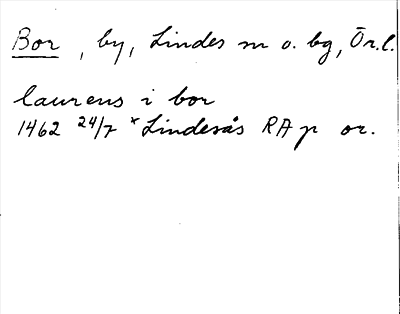 Bor, by, Lindes sn o. bg, Ör.l.
laurens i bor
1462 24/7 *Lindesås RA p or.